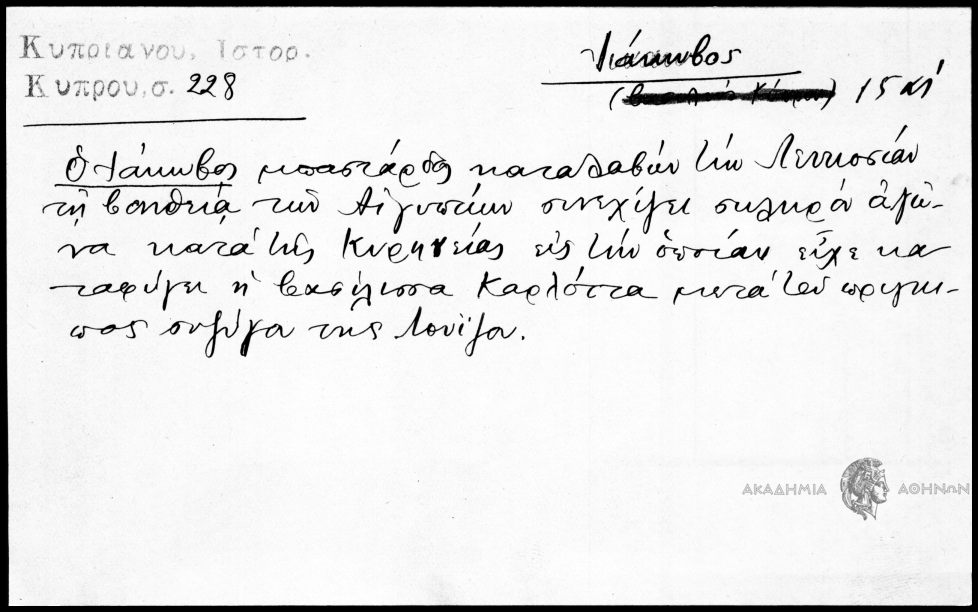 Κυπριανου, Ιστορ.
Κυπρου, σ. 228
Ἰάκωβος
(βασιλεὺς Κύπρου)
Ὁ Ἰάκωβος μπαστάρδος καταλαβών τήν Λευκοσίαν
τῇ βοηθείᾳ τῶν Αἰγυπτίων συνεχίζει σκληρόν ἀγῶ-
να κατά τῆς Κυρηνείας εἰς τήν ὁποίαν εἶχε κα-
ταφύγει ἡ βασίλισσα Καρλόττα μετά τοῦ πρίγκι-
πος συζύγου της Λουΐζου.
ΑΚΑΔΗΜΙΑ ΑΘΗΝΩΝ